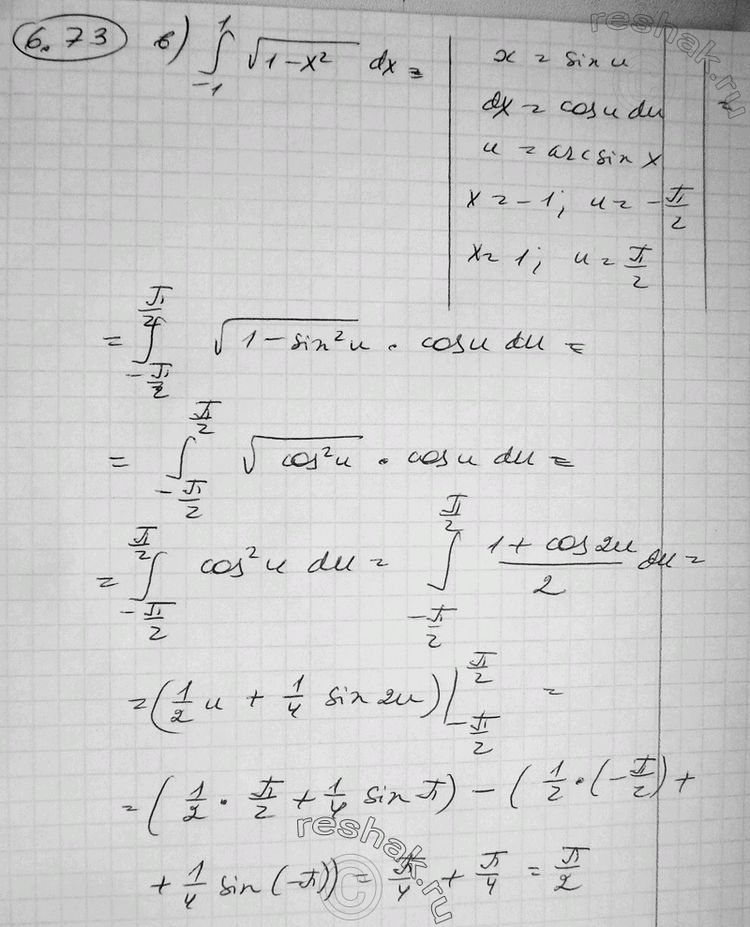 6.73 в) ∫_{-1}^{1} √(1-x²) dx = | x = sin u | =
dx = cos u du
u = arcsin x
x = -1; u = -π/2
x = 1; u = π/2
= ∫_{-π/2}^{π/2} √(1-sin²u) · cos u du =
= ∫_{-π/2}^{π/2} √(cos²u) · cos u du =
= ∫_{-π/2}^{π/2} cos²u du = ∫_{-π/2}^{π/2} (1+cos2u)/2 du =
= (1/2 u + 1/4 sin 2u) |_{-π/2}^{π/2} =
= (1/2 · π/2 + 1/4 sin π) - (1/2 · (-π/2) +
+ 1/4 sin(-π)) = π/4 + π/4 = π/2
reshak.ru
reshak.ru
©